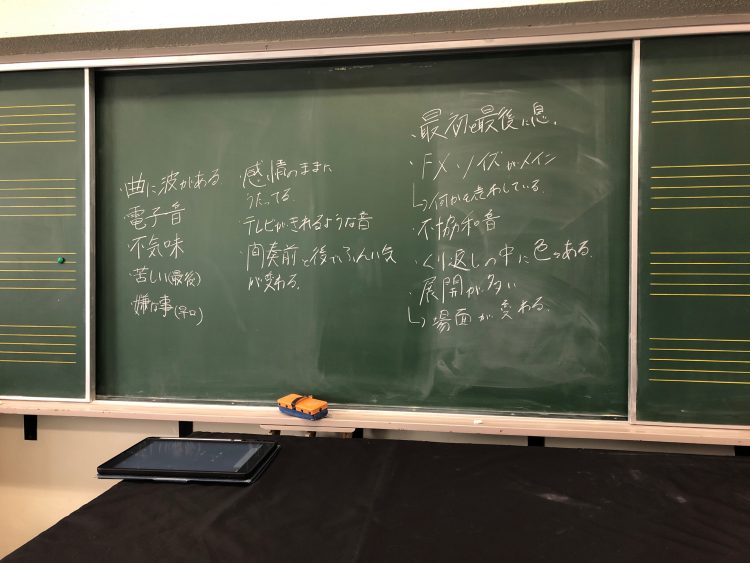 ・最初と最後に息.
・FX・ノイズがメイン
↳何かを表わしている.
・不協和音
・くり返しの中に色々ある.
・展開が多い
↳場面が変わる.
・感情のままに
うたってる.
・テレビがきれるような音
・間奏前と後でふんい気
が変わる.
・曲に波がある
・電子音
・不気味
・苦しい(最後)
・嫌な事(早口)